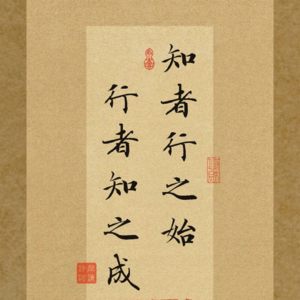 知者行之始
行者知之成